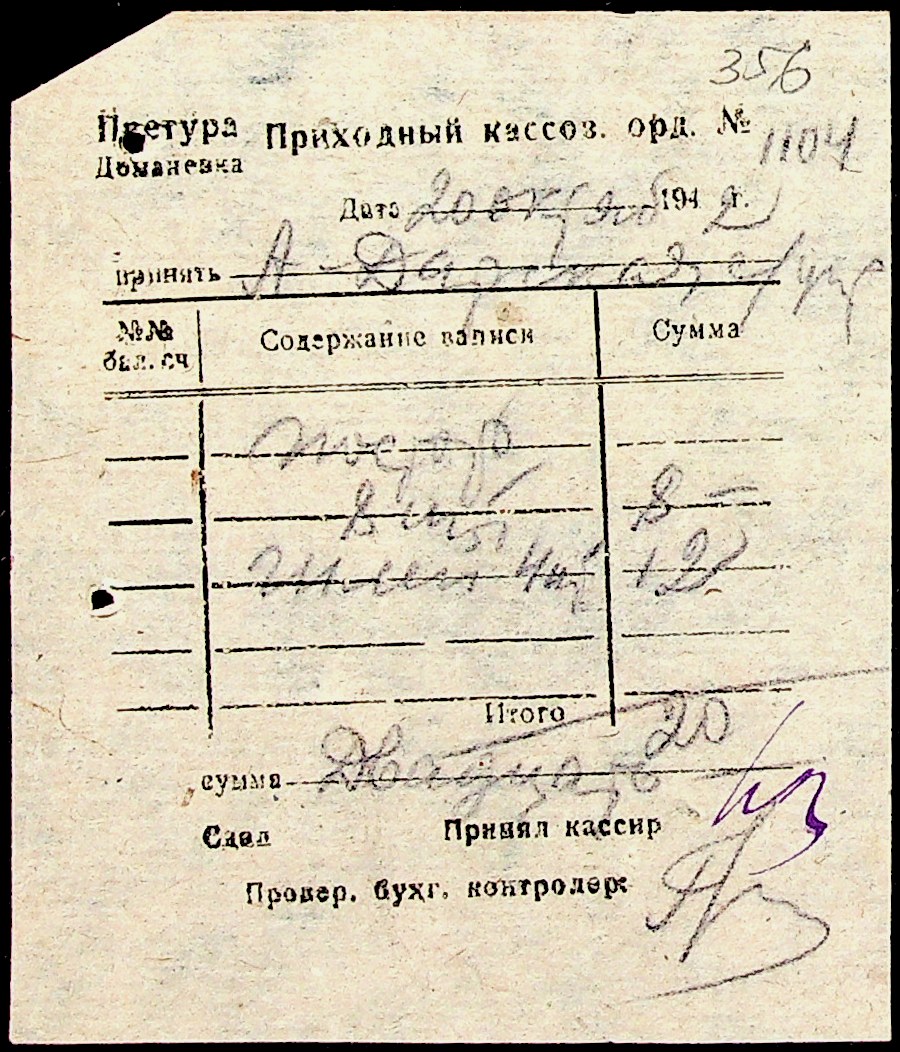 356
Претура Приходный кассов. орд. № 1104
Доманевка
Дата 20 октяб 194 2 г.
принять А
№№ бал. сч Содержание записи Сумма
8 –
12
Итого 20
сумма Двадцать
Сдал Принял кассир
Провер. бухг. контролер: